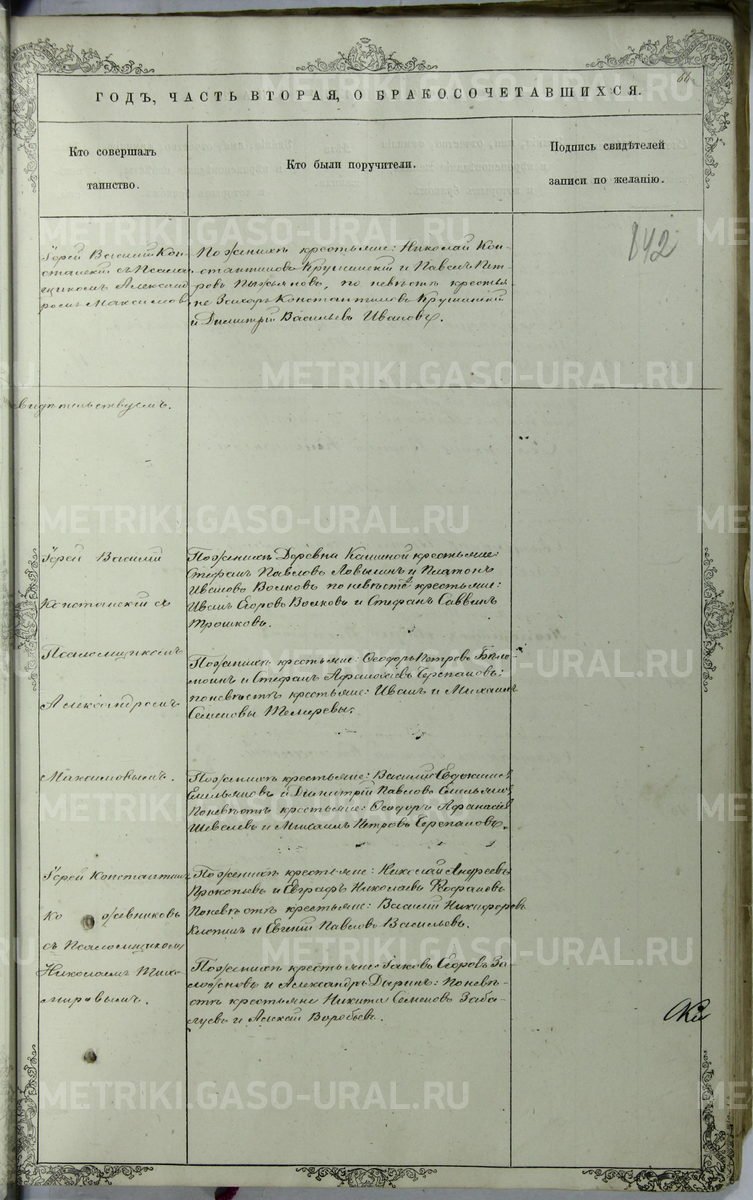 66
ГОДЪ, ЧАСТЬ ВТОРАЯ, О БРАКОСОЧЕТАВШИХСЯ.
Кто совершалъ
таинство.
Кто были поручители.
Подпись свидѣтелей
записи по желанію.
142
Іерей Василій Кон-
станскій съ Псалом-
щикомъ Александ-
ромъ Максимов
По женихѣ крестьяне: Николай Кон-
стантиновъ Крушинскій и Павелъ Пет-
ровъ, по невѣстѣ крестья-
не Захаръ Константиновъ Крушинскій
и Димитрій Васильевъ Ивановъ.
видѣтельствуемъ.
Іерей Василій
Констанскій съ
Псаломщикомъ
Александромъ
Максимовымъ.
По женихѣ Деревни Кашиной крестьяне:
Стефанъ Павловъ и Платонъ
Ивановъ Волковъ по невѣстѣ крестьяне:
Иванъ Егоровъ Волковъ и Стефанъ Саввинъ
Трошковъ.
По женихѣ крестьяне: Ѳеодоръ Петровъ
и Стефанъ Афанасьевъ Черепановъ:
по невѣстѣ крестьяне: Иванъ и Михаилъ
Семеновы
По женихѣ крестьяне: Василій Евдокимов
Емельяновъ и Димитрій Павловъ
По невѣстѣ крестьяне: Ѳеодоръ Афанасьев
Шевелевъ и Михаилъ Петровъ Черепановъ.
Іерей Константинъ
Кожевниковъ
съ Псаломщикомъ
Николаемъ Тихо-
мировымъ.
По женихѣ крестьяне: Николай Андреевъ
Прокопьевъ и Евграфъ Николаевъ
По невѣстѣ крестьяне: Василій Никифоровъ
и Евгеній Павловъ Васильевъ.
По женихѣ крестьяне: Яковъ Егоровъ
и Александръ: По невѣс-
тѣ крестьяне Никита Семеновъ
и Алексѣй Воробьевъ.
METRIKI.GASO-URAL.RU